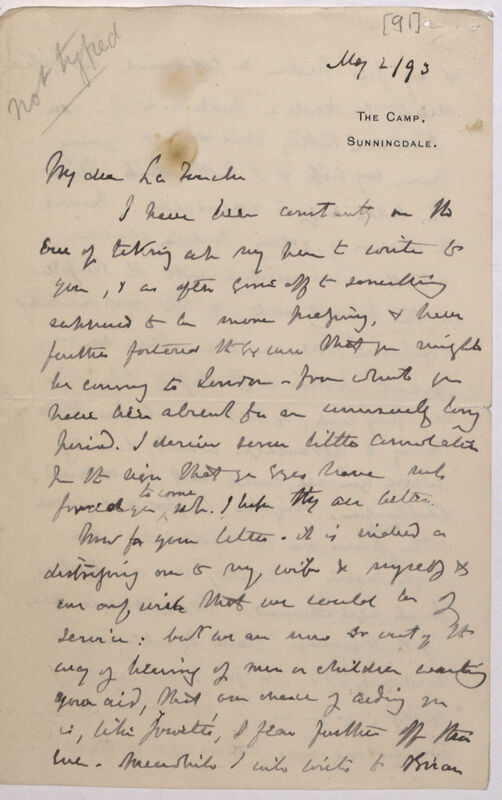 [91]
not typed
May 2/93
THE CAMP.
SUNNINGDALE.
My dear La Touche
I have been constantly on the
eve of taking up my pen to write to
you, & as often gone off to something
supposed to be more pressing, & have
further fostered the excuse that you might
be coming to London - from which you
have been absent for an unusually long
period. I derive some little consolation
in the sign that yr eyes have not
forced you to come, . I hope they are better.
Now for your letter - it is indeed a
distressing one to my wife & myself &
we only wish that we could be of
service: but we are now so out of the
way of hearing of men or children wanting
your aid, that our chance of aiding you
is, like Jowett's, I fear further off than
ever. Meanwhile I will write to Brian